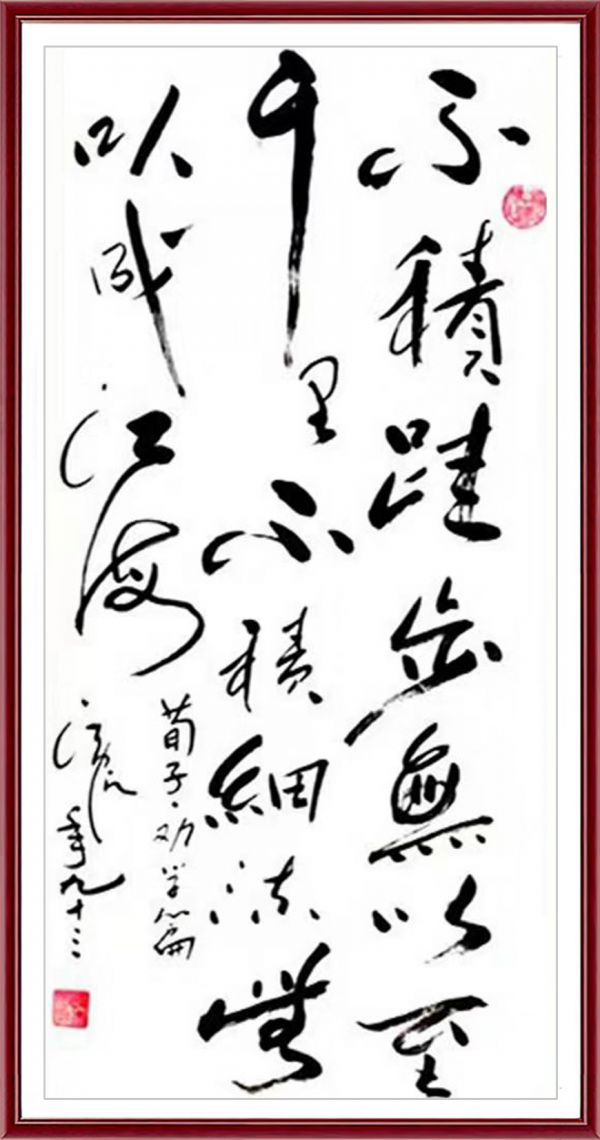 不積跬步無以至
千里不積細流無
以成江海
荀子·劝学篇
年九十三